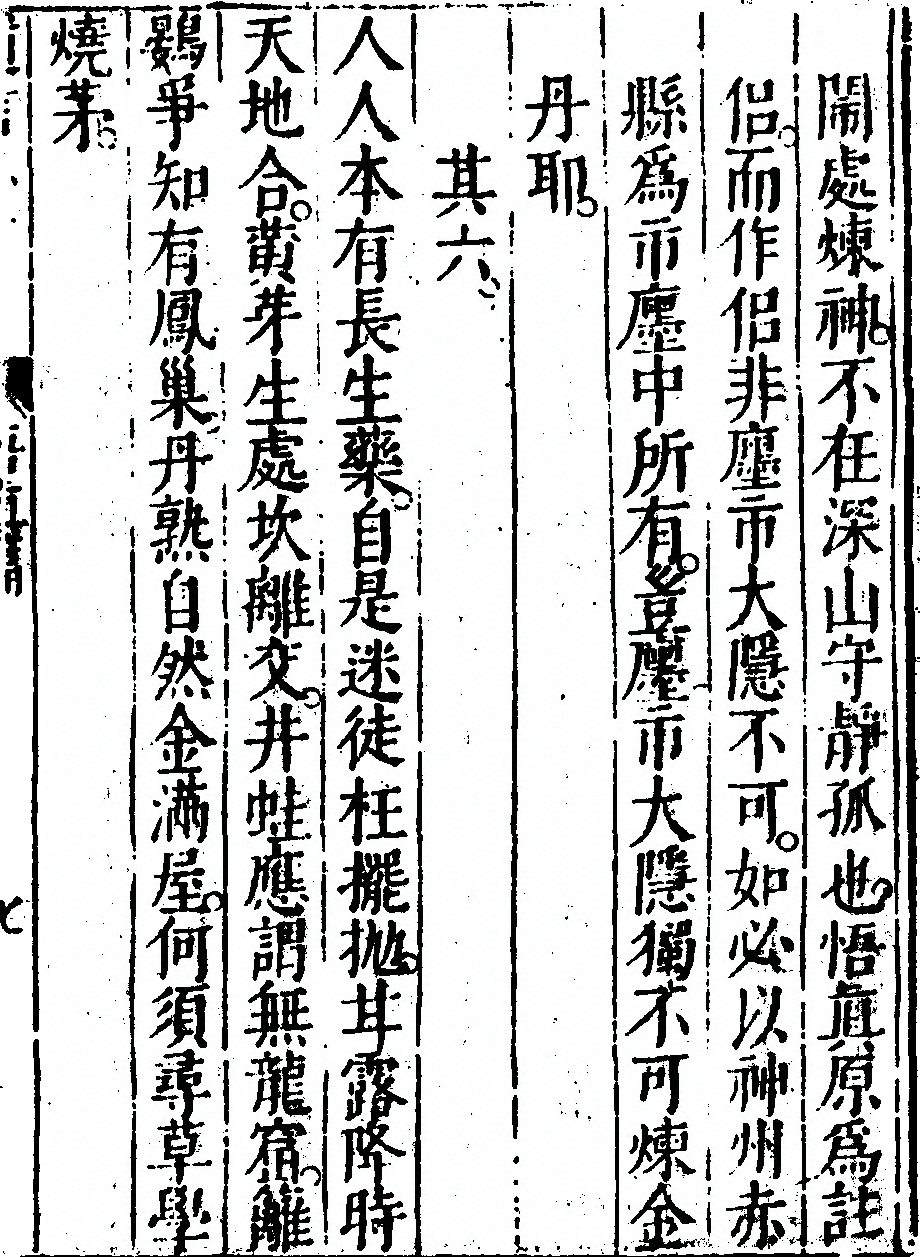 鬧處煉神不在深山守靜孤也悟眞原爲註
侶而作侶非廛市大隱不可如必以神州赤
縣爲市廛中所有豈廛市大隱獨不可煉金
丹耶
其六
人人本有長生藥自是迷徒枉擺抛甘露降時
天地合黃芽生處坎離交井蛙應謂無龍窟籬
鷃爭知有鳳巢丹熟自然金滿屋何須尋草學
燒茅